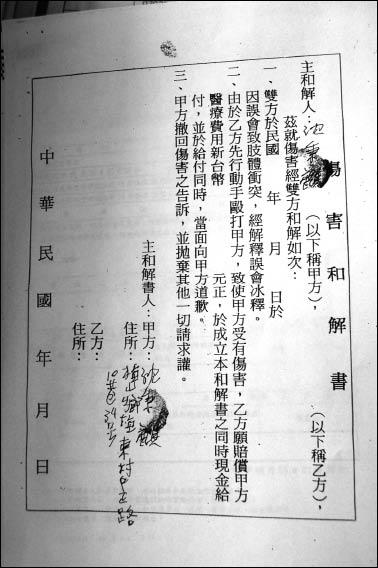 傷害和解書
（以下稱乙方），
主和解人：沈（以下稱甲方），
茲就傷害經雙方和解如次：
一、雙方於民國　年　月　日於
因誤會致肢體衝突，經解釋誤會冰釋。
二、由於乙方先行動手毆打甲方，致使甲方受有傷害，乙方願賠償甲方
醫療費用新台幣　元正，於成立本和解書之同時現金給
付，並於給付同時，當面向甲方道歉。
三、甲方撤回傷害之告訴，並拋棄其他一切請求讓。
主和解書人：甲方：沈
住所：東村中正路
乙方：
住所：
中華民國　年　月　日